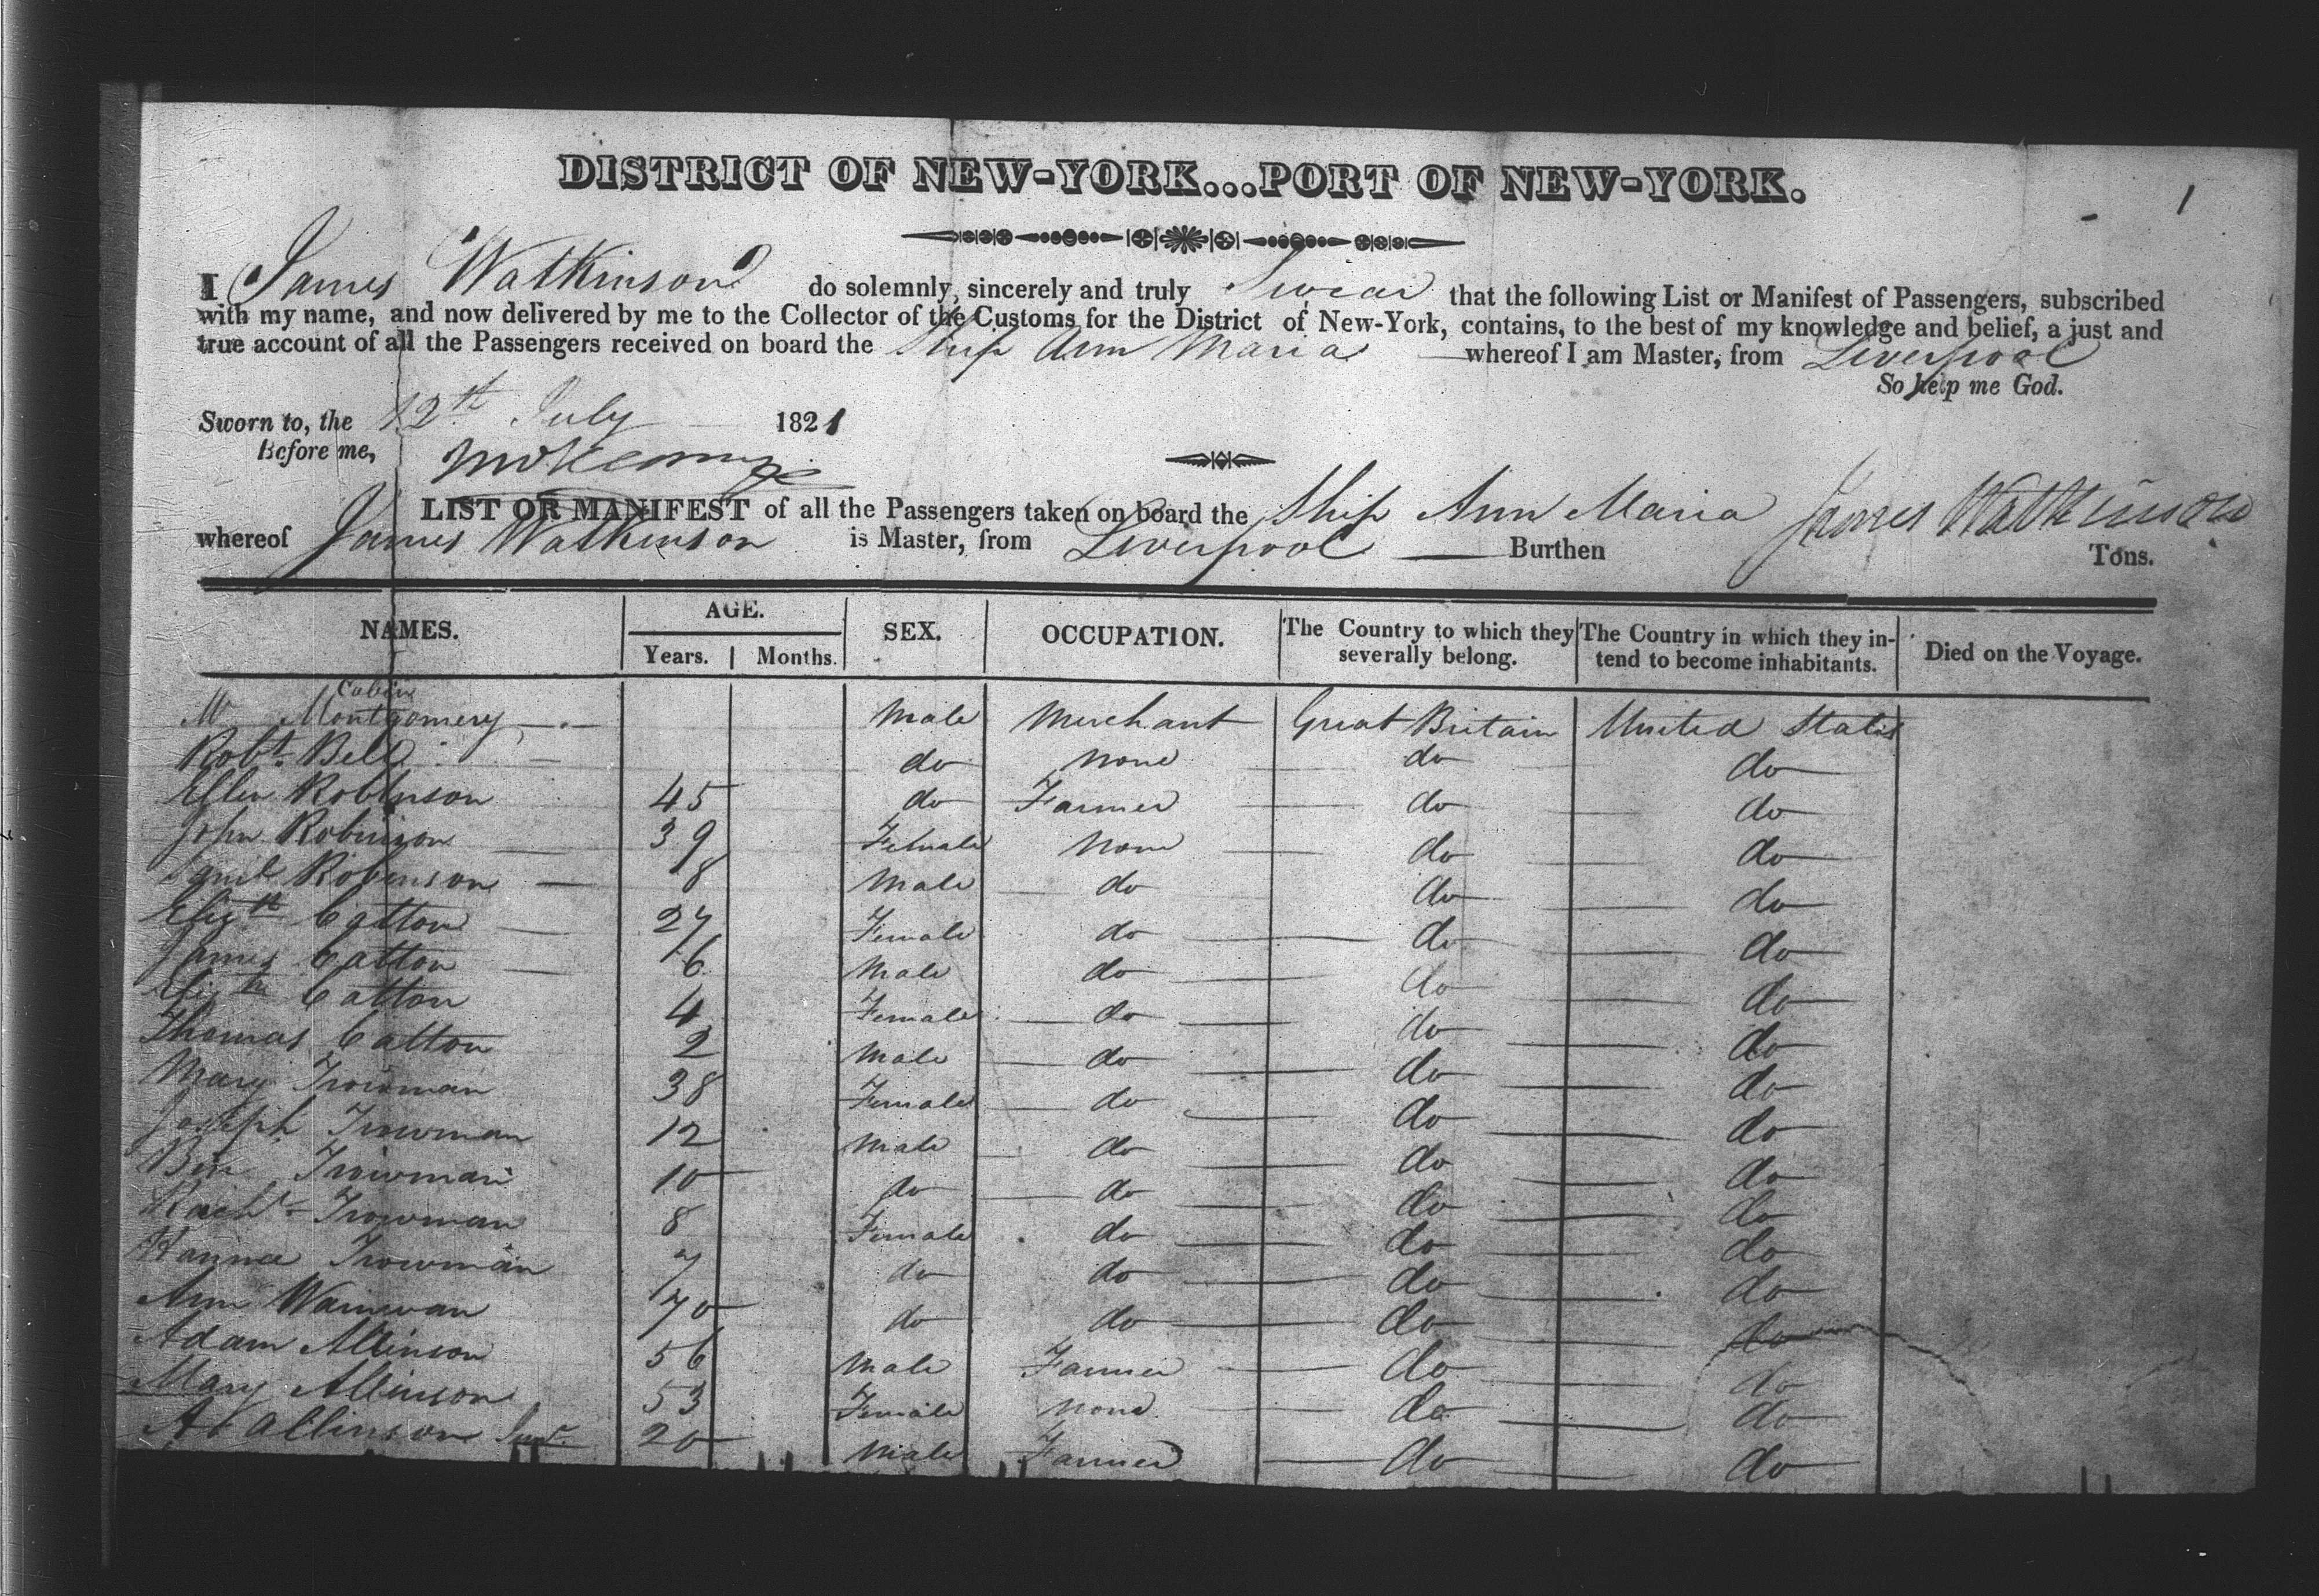 DISTRICT OF NEW-YORK...PORT OF NEW-YORK.
1
I James Watkinson do solemnly, sincerely and truly Swear that the following List or Manifest of Passengers, subscribed
with my name, and now delivered by me to the Collector of the Customs for the District of New-York, contains, to the best of my knowledge and belief, a just and
true account of all the Passengers received on board the Ship Ann Maria whereof I am Master, from Liverpool
So help me God.
Sworn to, the 12th July 1821
Before me,
LIST OR MANIFEST of all the Passengers taken on board the Ship Ann Maria James Watkinson
whereof James Watkinson is Master, from Liverpool Burthen Tons.
NAMES. AGE. SEX. OCCUPATION. The Country to which they severally belong. The Country in which they intend to become inhabitants. Died on the Voyage.
Years. Months.
Cabin
M Montgomery Male Merchant Great Britain United States
Robt. Bell do none do do
Ellen Robinson 45 do Farmer do do
John Robinson 39 Female none do do
Robinson 8 Male do do do
Elizth Catton 27 Female do do do
James Catton 6 Male do do do
Elizth Catton 4 Female do do do
Thomas Catton 2 Male do do do
Mary Trowman 38 Female do do do
Joseph Trowman 12 Male do do do
Ben Trowman 10 do do do do
Rachl Trowman 8 Female do do do
Hannea Trowman 7 do do do do
Ann 70 do do do do
Adam Allinson 56 Male Farmer do do
Mary Allinson 53 Female none do do
Ad Allinson Junr. 20 Male Farmer do do